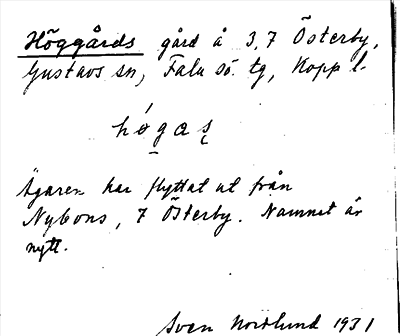 Höggårds gård å 3,7 Österby,
Gustavs sn, Falu sö. tg, Kopp l.
hógas̨
Ägaren har flyttat ut från
Nybons, 7 Österby. Namnet är
nytt.
Sven Norlund 1931